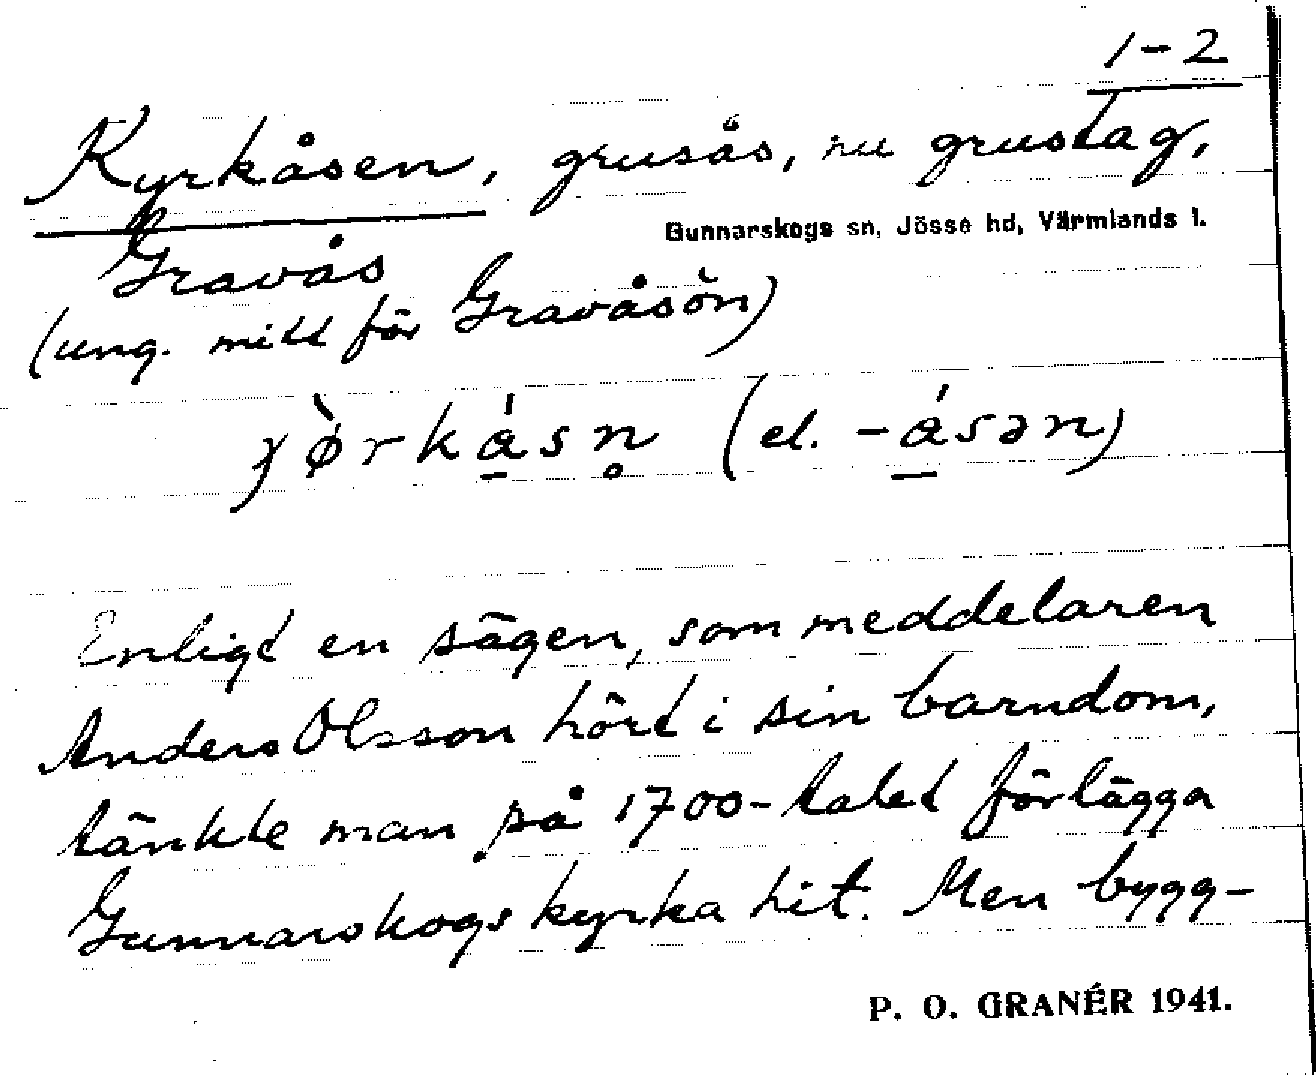 1-2
Kyrkåsen, grusås, nu grustag,
Gunnarskogs sn, Jösse hd, Värmlands l.
Gravås
(ung. mitt för Gravåsön)
(el. -ásən)
Enligt en sägen, som meddelaren
Anders Olsson hört i sin barndom,
tänkte man på 1700-talet förlägga
Gunnarskogs kyrka hit. Men bygg-
P. O. GRANÉR 1941.